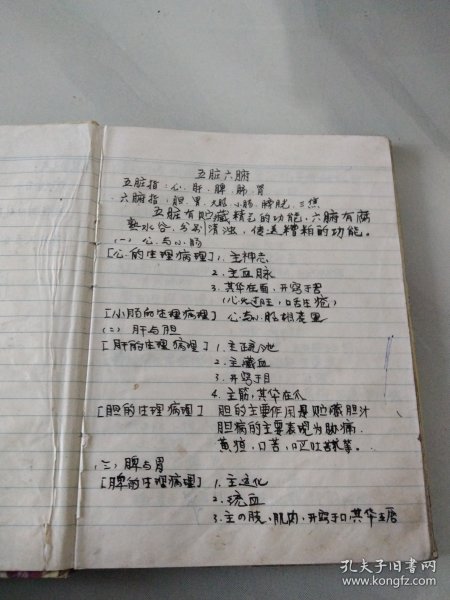 五脏六腑
五脏指:心、肝、脾、肺、肾
六腑指:胆、胃、大肠、小肠、膀胱、三焦
五脏有贮藏精气的功能,六腑有腐
熟水谷,分别清浊,传送糟粕的功能。
(一) 心与小肠
[心的生理病理] 1.主神志
2.主血脉
3.其华在面,开窍于舌
(心火过旺,口舌生疮)
[小肠的生理病理] 心与小肠相表里
(二) 肝与胆
[肝的生理病理] 1.主疏泄
2.主藏血
3.开窍于目
4.主筋,其华在爪
[胆的生理病理] 胆的主要作用是贮藏胆汁
胆病的主要表现为胁痛
黄疸,口苦,呕吐等。
(三) 脾与胃
[脾的生理病理] 1.主运化
2.统血
3.主四肢、肌肉,开窍于口,其华在唇
孔夫子旧书网
www.kongfz.com